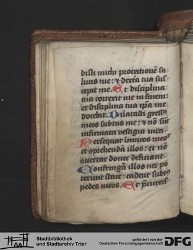 disti michi protectionē sa
lutis tue : & dextera tua sus
cepit me Et disciplina
tua correxit me in finem :
et disciplina tua ip̄a me
docebit Dilatasti gress̄
meos subtus me : & nō sūt
infirmata vestigia mea
Persequar inimicos meos
et  illos : et nō
donec deficiant
Confringam illos nec po
terunt stare : cadent subtus
pedes meos Et
Stadtbibliothek
und Stadtarchiv Trier
gefördert von der
Deutschen Forschungsgemeinschaft
DFG